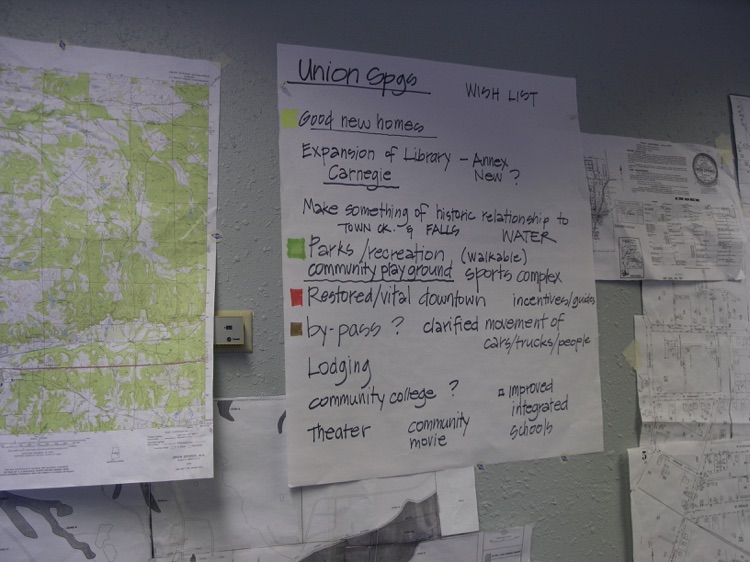 Union Spgs
WISH LIST
Good new homes
Expansion of Library - Annex
Carnegie New ?
Make something of historic relationship to
TOWN CK. - & FALLS WATER
Parks/recreation (walkable)
community playground sports complex
Restored/vital downtown incentives/guides
by-pass ? clarified movement of
cars/trucks/people
Lodging
community college ?
improved
integrated
schools
Theater
community
movie